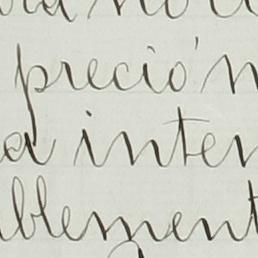 preció n
a inter
blement